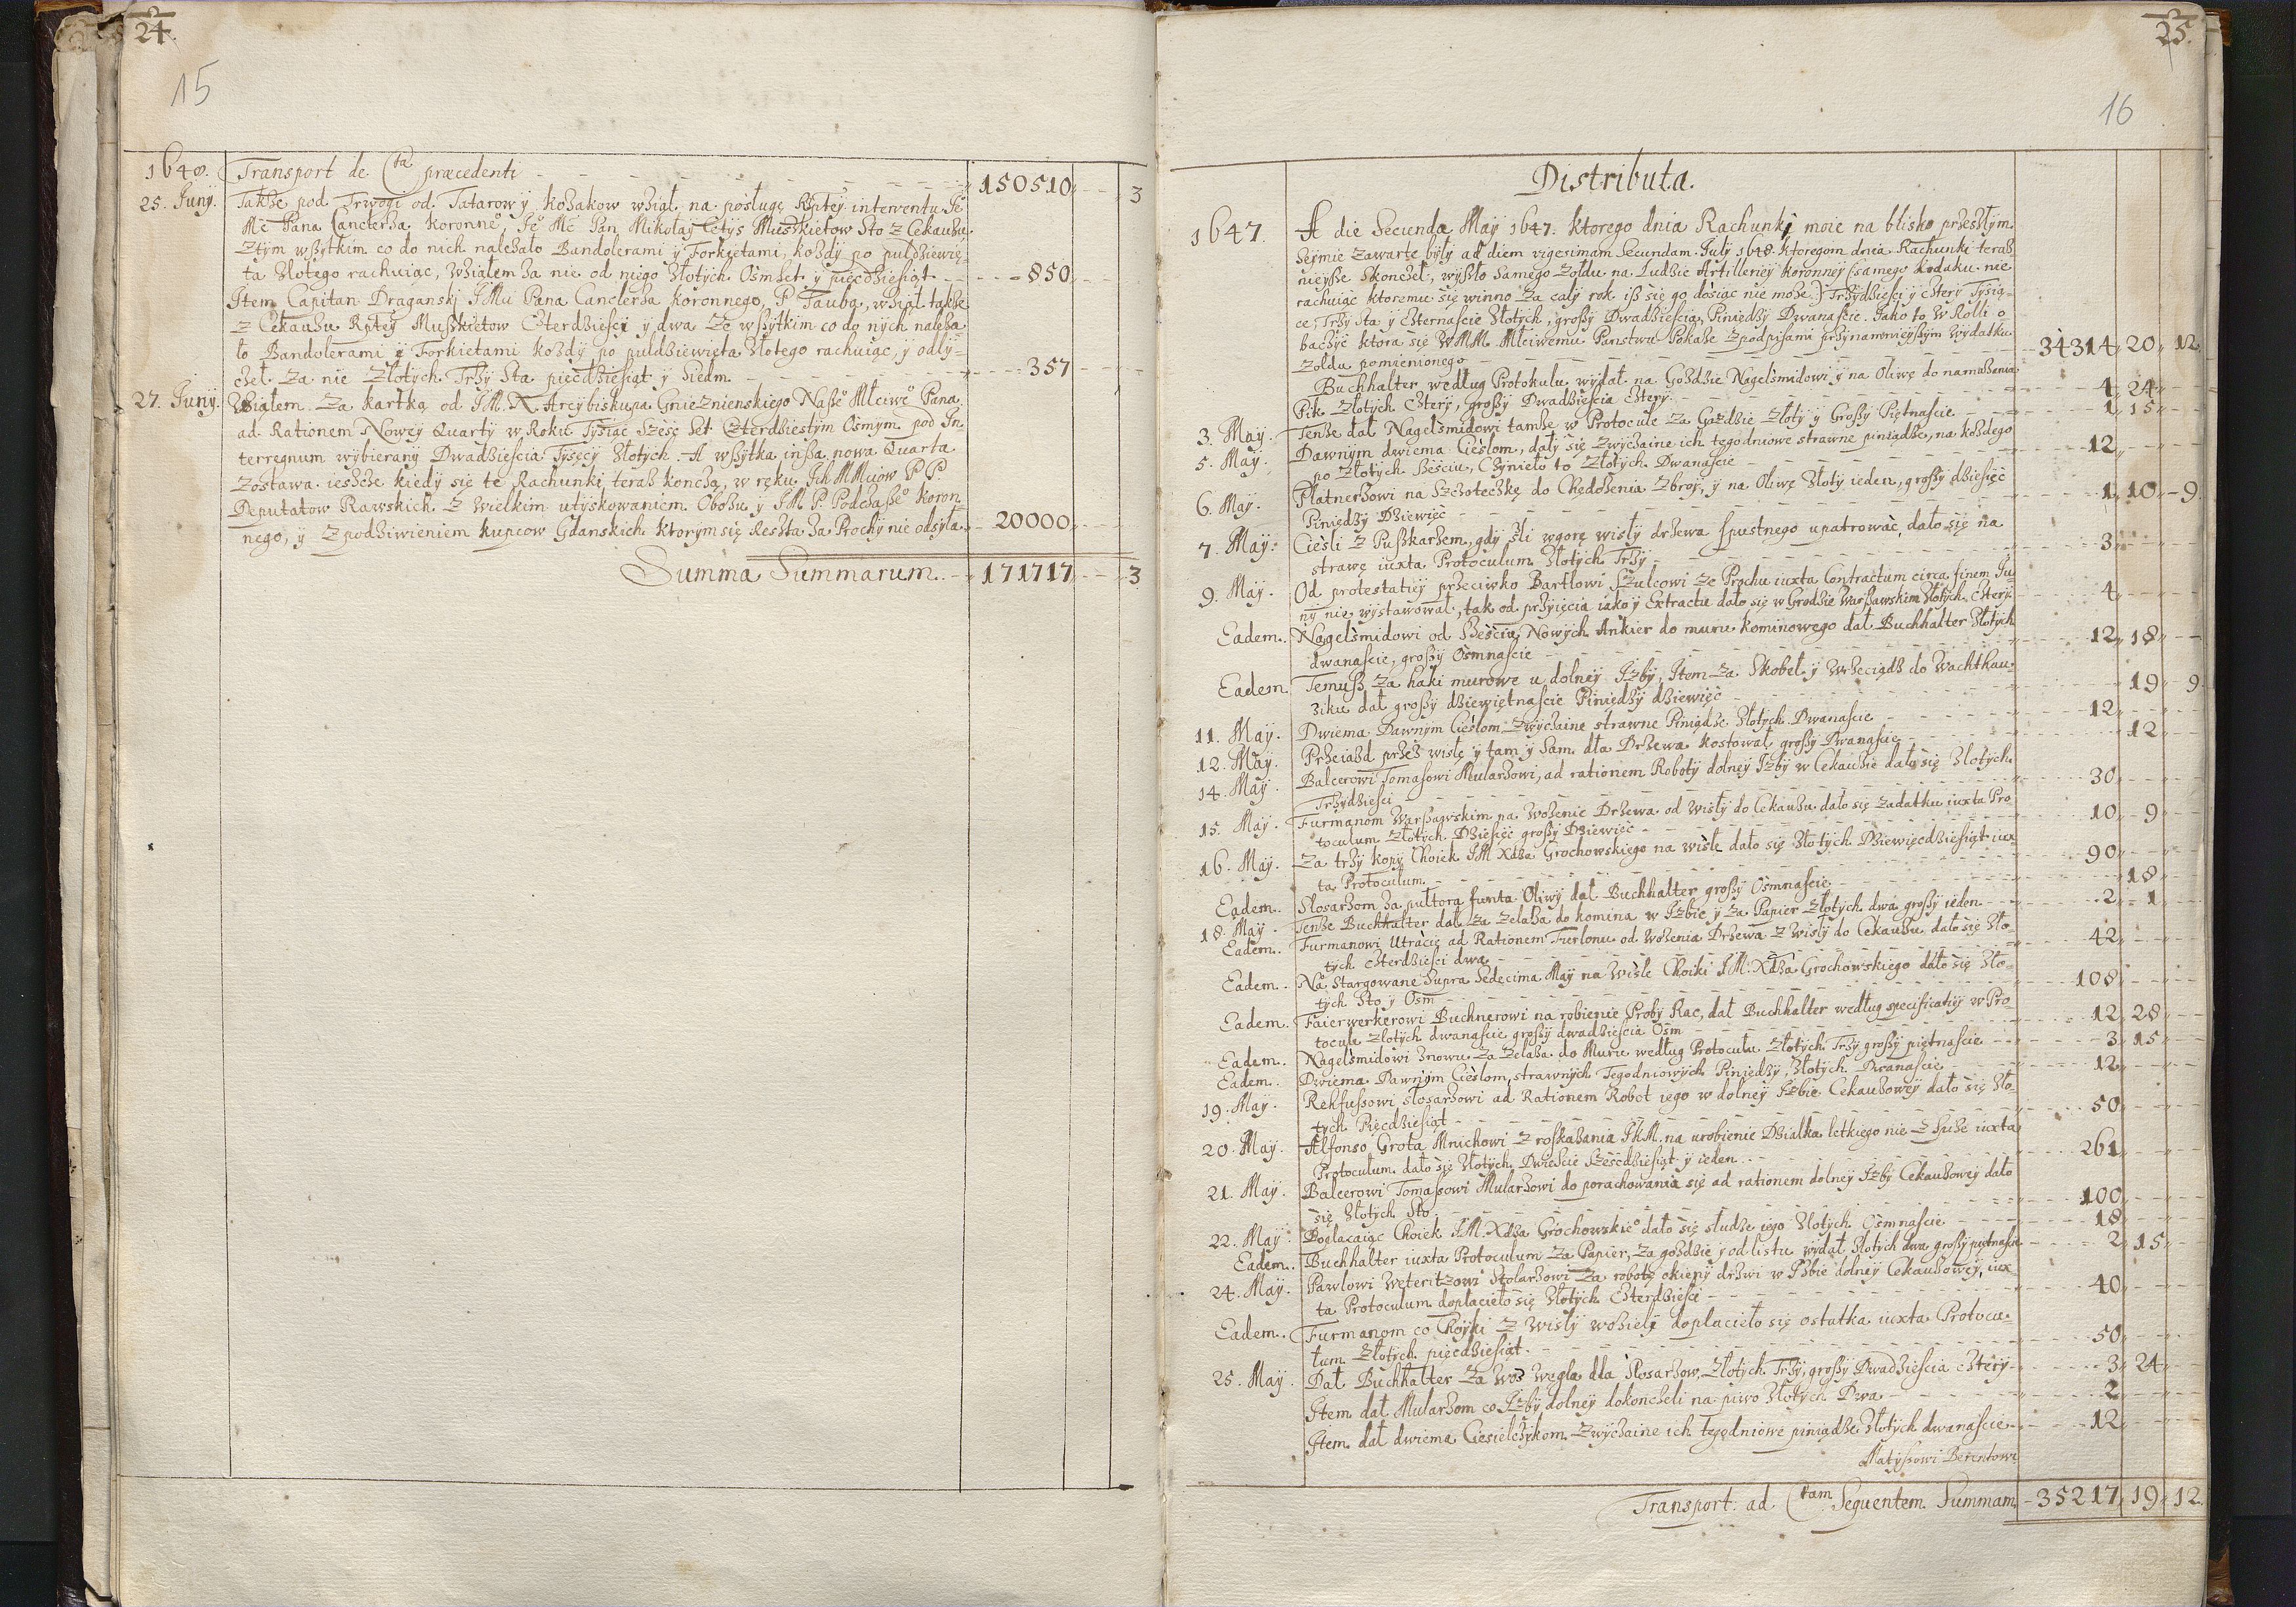 24
15
1648. Transport de Cta præcedenti 150510 3
25. Juny. Takße pod Trwogi od Tatarow y kozakow wßiał na posługę Rptey interventu Jeo
Mć Pana Canclerza Koronneo, Jeo Mć Pan Mikołaj Muszkietow Sto z Cekauzu
Ztym wßytkim co do nich należało Bandolerami y Forkietami, kożdy po pułdziewię-
ta złotego rachuiąc, wziąłem za nie od niego złotych Ośmset y pięćdziesiąt 850
Item Capitan Draganski JMci Pana Canclerza Koronnego, P Tauba, wßiął takße
z Cekauzu Rptey Mußkietow Czterdzieści y dwa ze wßytkim co do nych należa
ło Bandolerami y Forkietami kożdy po pułdziewięta złotego rachuiąc, y odli-
czeł za nie Złotych Trzy Sta pięcdziesiąt y Siedm 357
27. Juny. Wziąłem za kartką od J.M.X. Arcybiskupa Gnieznienskiego Naßeo Mćiweo Pana
ad Rationem Nowey Quarty w Roku Tysiąć Sześć Set Czterdziestym Osmym pod In-
terregnum wybierany Dwadzieścia Tysięcy Złotych. A wßytka inßa nowa Quarta
zostawa ieszcze kiedy się te Rachunki teraz koncza, w ręku Ich MMciow P.P.
Deputatow Rawskich. Z wielkim utyskowaniem Obozu y J.M.P. Podczaßeo Koron-
nego, y z podziwieniem kupcow Gdanskich ktorym się Reszta za Prochy nie odsyła 20000
Summa Summarum 171717 3
25.
16
Distributa.
1647. A die Secunda May 1647. ktorego dnia Rachunki moie na blisko przeszłym
Seymie zawarte były ad diem vigesimam Secundam July 1648. ktoregom dnia Rachunki teraz
nieyße Skonczeł, wyszło Samego Żołdu na Ludzie Artilleriey Koronney (samego Kodaku nie
rachuiąc ktoremu się winno za cały rok iß się go dosiąc nie może) Trzydzieści y cztery Tysią-
ce, Trzy Sta y Czternaście Złotych, groszy Dwadzieścia, Pieniędzy Dwanaście. Iako to w Rolli o
baczyć ktora się W.MM. Mćiwemu Panstwu Pokaże z podpisami przynamnieyßym wydatku
Zołdu pomienionego 34314 20 12
Buchhalter według Protokulu wydał na Goździe Nagelśmidowi y na Oliwę do namazania
Pik Złotych Cztery, groszy Dwadzieścia Cztery 4 24
3. May. Tenże dał Nagelśmidowi tamże w Protocule za Goździe Złoty y Groszy Piętnaście 1 15
5. May. Dawnym dwiema Cieślom, dały się zwyczaine ich tegodniowe strawne piniądze, na kożdego
po złotych Sześciu, Czynieło to Złotych Dwanaście 12
6. May. Płatnerzowi na Szczoteczkę do Chędożenia Zbroy, y na Oliwę Złoty ieden, groszy dziesięć
Piniędzy Dziewięć 1 10 9
7. May. Cieśli z Pußkarzem, gdy śli wgorę wisły drzewa spustnego upatrować, dało się na
strawę iuxta Protoculum Złotych Trzy 3
9. May. Od protestatiey przeciwko Bartlowi Szulcowi ze Prochu iuxta Contractum circa finem Ju-
ny nie wystawował, tak od przyięcia iako y Extractu dało się w Grodzie Warßawskim Złotych Cztery 4
Eadem. Nagelśmidowi od Sześcia Nowych Ankier do muru kominowego dał Buchhalter Złotych
dwanaście, groszy Ośmnaście 12 18
Eadem. Temuß za haki murowe u dolney Izby, Item za Skobel y Wrzeciądz do Wachthau-
ziku dał groszy dziewiętnaście Piniędzy dziewięć 19 9
11. May. Dwiema Dawnym Cieślom Zwyczaine strawne Piniądze Złotych Dwanaście 12
12. May. Przeiazd przez wisłę y tam y Sam dla Drzewa kostował groszy Dwanaście 12
14. May. Balcerowi Tomasowi Mularzowi, ad rationem Roboty dolney Izby w Cekauzie dało się Złotych
Trzydzieści 30
15. May. Furmanom Warßawskim na Wożenie Drzewa od Wisły do Cekauzu dało się zadatku iuxta Pro-
toculum Złotych Dziesięć groszy Dziewięć 10 9
16. May. Za trzy kopy Choiek J.M. Xdza Grochowskiego na wiśle dało się Złotych Dziewięcdziesiąt iux-
ta Protoculum 90
Eadem. Slosarzom za pułtora funta Oliwy dał Buchhalter groszy Ośmnaście 18
18. May. Tenże Buchhalter dał za żelaza do komina w Izbie y za Papier Złotych dwa groszy ieden 2 1
Eadem. Furmanowi Utracie ad Rationem Furlonu od wożenia Drzewa z Wisły do Cekauzu dało się Zło-
tych Czterdzieści dwa 42
Eadem. Na Stargowane Supra Sedecima May na Wiśle Choiki J.M. Xdza Grochowskiego dało się Zło-
tych Sto y Ośm 108
Eadem. Faierwerkerowi Buchnerowi na robienie Proby Rac, dał Buchhalter według specificatiey w Pro-
tocule Złotych dwanaście groszy dwadzieścia Ośm 12 28
Eadem. Nagelśmidowi znowu za żelaza do Muru według Protocułu Złotych Trzy groszy piętnaście 3 15
Eadem. Dwiema Dawnym Cieślom, strawnych Tegodniowych Piniędzy, Złotych Dwanaście 12
19. May. Rehfussowi slosarzowi ad Rationem Robot iego w dolney Izbie Cekauzowey dało się Zło-
tych Pięcdziesiąt 50
20. May. Alfonso Grota Mnichowi z roskazania J.K.M. na urobienie Działka letkiego nie z iuxta
Protoculum dało się Złotych Dwieście Sześćdziesiąt y ieden 261
21. May. Balcerowi Tomassowi Mularzowi do porachowania się ad rationem dolney Izby Cekauzowey dało
się Złotych Sto 100
22. May. Dopłacaiąc Choiek J.M. Xdza Grochowskieo dało się słudze iego Złotych Ośmnaście 18
Eadem. Buchhalter iuxta Protoculum za Papier, za goździe y od listu wydał Złotych dwa groszy piętnaście 2 15
24. May. Pawłowi Weteritzowi Stolarzowi za robotę okien y drzwi w Izbie dolney Cekauzowey, iux-
ta Protoculum dopłacieło się Złotych Czterdzieści 40
Eadem. Furmanom co Choyki z Wisły wozieły dopłacieło się ostatka iuxta Protocu-
lum Złotych pięcdziesiąt 50
25. May. Dał Buchhalter za Woz węgla dla Slosarzow, Złotych Trzy, groszy Dwadzieścia cztery 3 24
Item dał Mularzom co Izby dolney dokonczeli na piwo Złotych Dwa 2
Item dał dwiema Ciesielczykom Zwyczaine ich tygodniowe piniądze Złotych dwanaście 12
Matyßowi Berentowi
Transport ad Ctam Sequentem Summam 35217 19 12